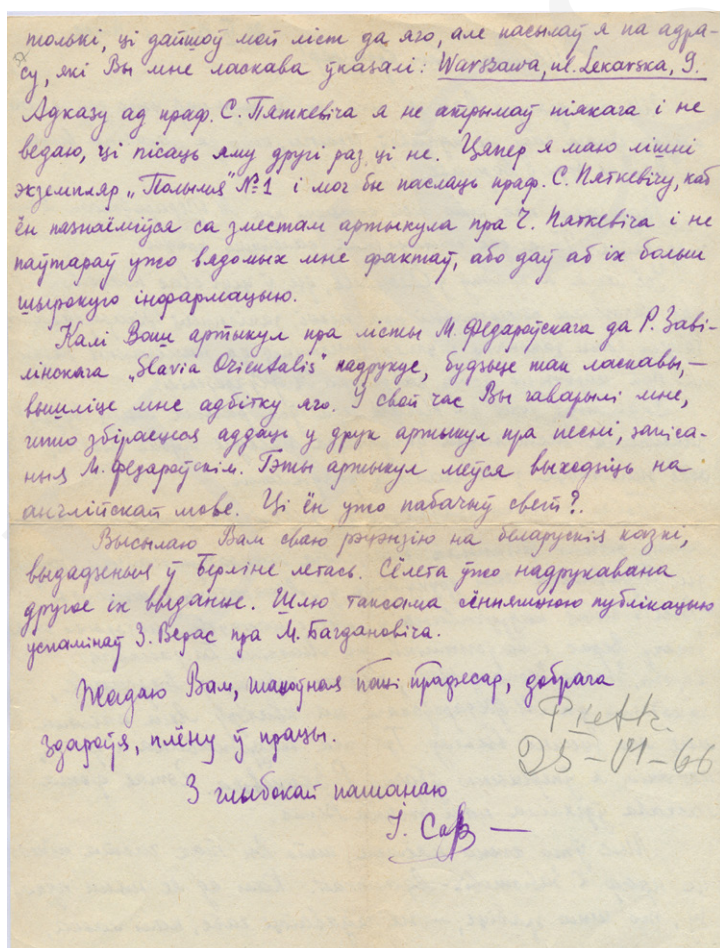 толькі, ці дайшоў мой ліст да яго, але насылаў я на адра-
су, які Вы мне ласкава ўказалі: Warszawa, ul. Lekarska, 9.
Адказу ад праф. С. Пяткевіча я не атрымаў ніякага і не
ведаю, ці пісаць яму другі раз ці не. Цяпер я маю лішні
экземпляр „Полымя" №1 і мог бы паслаць праф. С. Пяткевічу, каб
ён пазнаёміўся са зместам артыкула пра Ч. Пяткевіча і не
паўтараў ужо вядомых мне фактаў, або даў аб іх больш
шырокую інфармацыю.
Калі Ваш артыкул пра лісты М. Федароўскага да Р. Заві-
лінскага „Slavia Orientalis" надрукуе, будзьце так ласкавы,—
вышліце мне адбітку яго. У свой час Вы гаварылі мне,
што збіраецеся аддаць у друк артыкул пра песні, запіса-
ныя М. Федароўскім. Гэты артыкул меўся выходзіць на
англійскай мове. Ці ён ужо пабачыў свет?.
Высылаю Вам сваю рэцэнзію на беларускія казкі,
выдадзеныя ў Берліне летась. Сёлета ўжо надрукавана
другое іх выданне. Шлю таксама сённяшнюю публікацыю
успамінаў З. Верас пра М. Багдановіча.
Жадаю Вам, шаноўная пані прафесар, добрага
здароўя, плёну ў працы.
25-VI-66
З глыбокай пашанаю
І. Сал